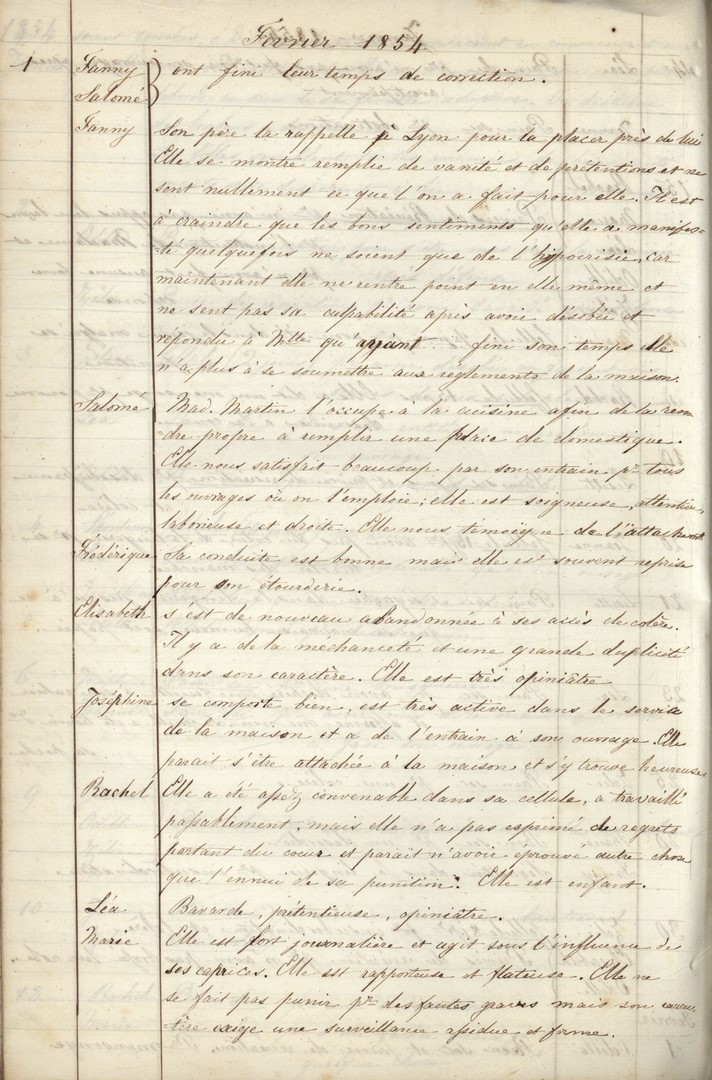 Février 1854
1 Fanny ) ont fini leur temps de correction.
Salomé )
Fanny Son père la rappelle à Lyon pour la placer près de lui
Elle se montre remplie de vanité et de prétentions et ne
sent nullement ce que l'on a fait pour elle. Il est
à craindre que les bons sentiments qu'elle a manifes-
-té quelquefois ne soient que de l'hypocrisie, car
maintenant elle ne rentre point en elle même et
ne sent pas sa culpabilité après avoir désobéi et
répondu à Mlle qu'ayant fini son temps elle
n'a plus à se soumettre aux règlements de la maison.
Salomé Mad. Martin l'occupe à la cuisine afin de la ren
dre propre à remplir une place de domestique.
Elle nous satisfait beaucoup par son entrain pr tous
les ouvrages où on l'emploie; elle est soigneuse, attentive,
laborieuse et droite. Elle nous témoigne de l'attachemt
Frédérique Sa conduite est bonne mais elle est souvent reprise
pour son étourderie.
Elisabeth s'est de nouveau abandonnée à ses accès de colère.
Il y a de la méchanceté et une grande duplicité
dans son caractère. Elle est très opiniâtre
Joséphine se comporte bien, est très active dans le service
de la maison et a de l'entrain à son ouvrage. Elle
parait s'être attachée à la maison et s'y trouve heureuse
Rachel Elle a été assez convenable dans sa cellule, a travaillé
passablement, mais elle n'a pas exprimé de regrets
partant du coeur et parait n'avoir éprouvé autre chose
que l'ennui de sa punition. Elle est enfant.
Léa Bavarde, prétentieuse, opiniâtre.
Marie Elle est fort journalière et agit sous l'influence de
ses caprices. Elle est rapporteuse et flateuse. Elle ne
se fait pas punir pr des fautes graves mais son carac-
tère exige une surveillance assidue et ferme.